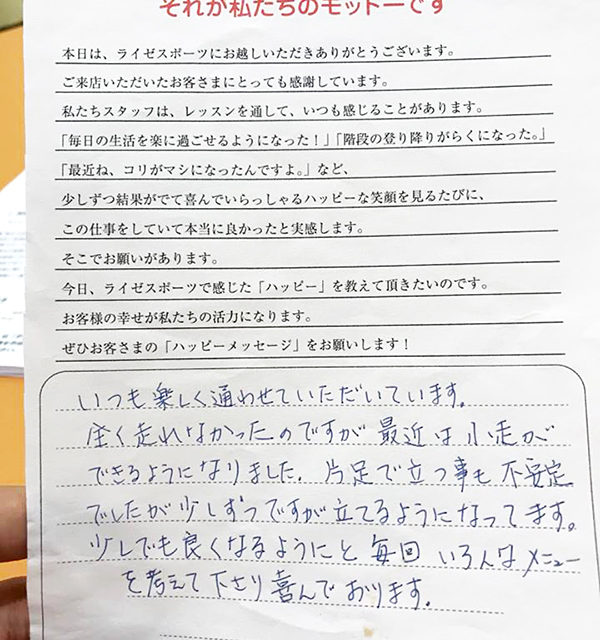 それが私たちのモットーです
本日は、ライゼスポーツにお越しいただきありがとうございます。
ご来店いただいたお客さまにとっても感謝しています。
私たちスタッフは、レッスンを通して、いつも感じることがあります。
「毎日の生活を楽に過ごせるようになった！」「階段の登り降りがらくになった。」
「最近ね、コリがマシになったんですよ。」など、
少しずつ結果がでて喜んでいらっしゃるハッピーな笑顔を見るたびに、
この仕事をしていて本当に良かったと実感します。
そこでお願いがあります。
今日、ライゼスポーツで感じた「ハッピー」を教えて頂きたいのです。
お客様の幸せが私たちの活力になります。
ぜひお客さまの「ハッピーメッセージ」をお願いします！
いつも楽しく通わせていただいています。
全く走れなかったのですが 最近は小走が
できるようになりました。片足で立つ事も不安定
でしたが少しずつですが立てるようになってます。
少しでも良くなるようにと毎回いろんなメニュー
を考えて下さり喜んでおります。